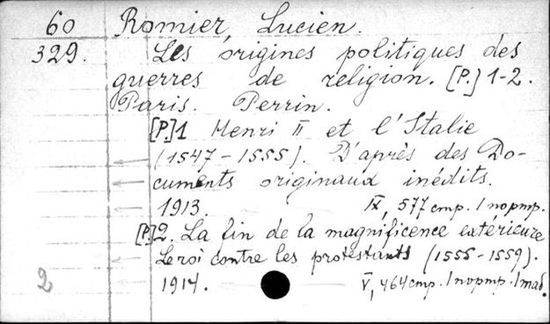 60 Romier, Lucien.
329. Les origines politiques des
guerres de religion. [P.] 1-2.
Paris. Perrin.
[P.]1 Henri II et l'Italie
(1547-1555). D'après des Do-
cuments originaux inédits.
1913. IX, 577 cmp. 1 nopmp.
[P.]2. La fin de la magnificence extérieure
Le roi contre les protestants (1555-1559).
2 1914. V, 464 cmp. 1 nopmp. 1 mad.